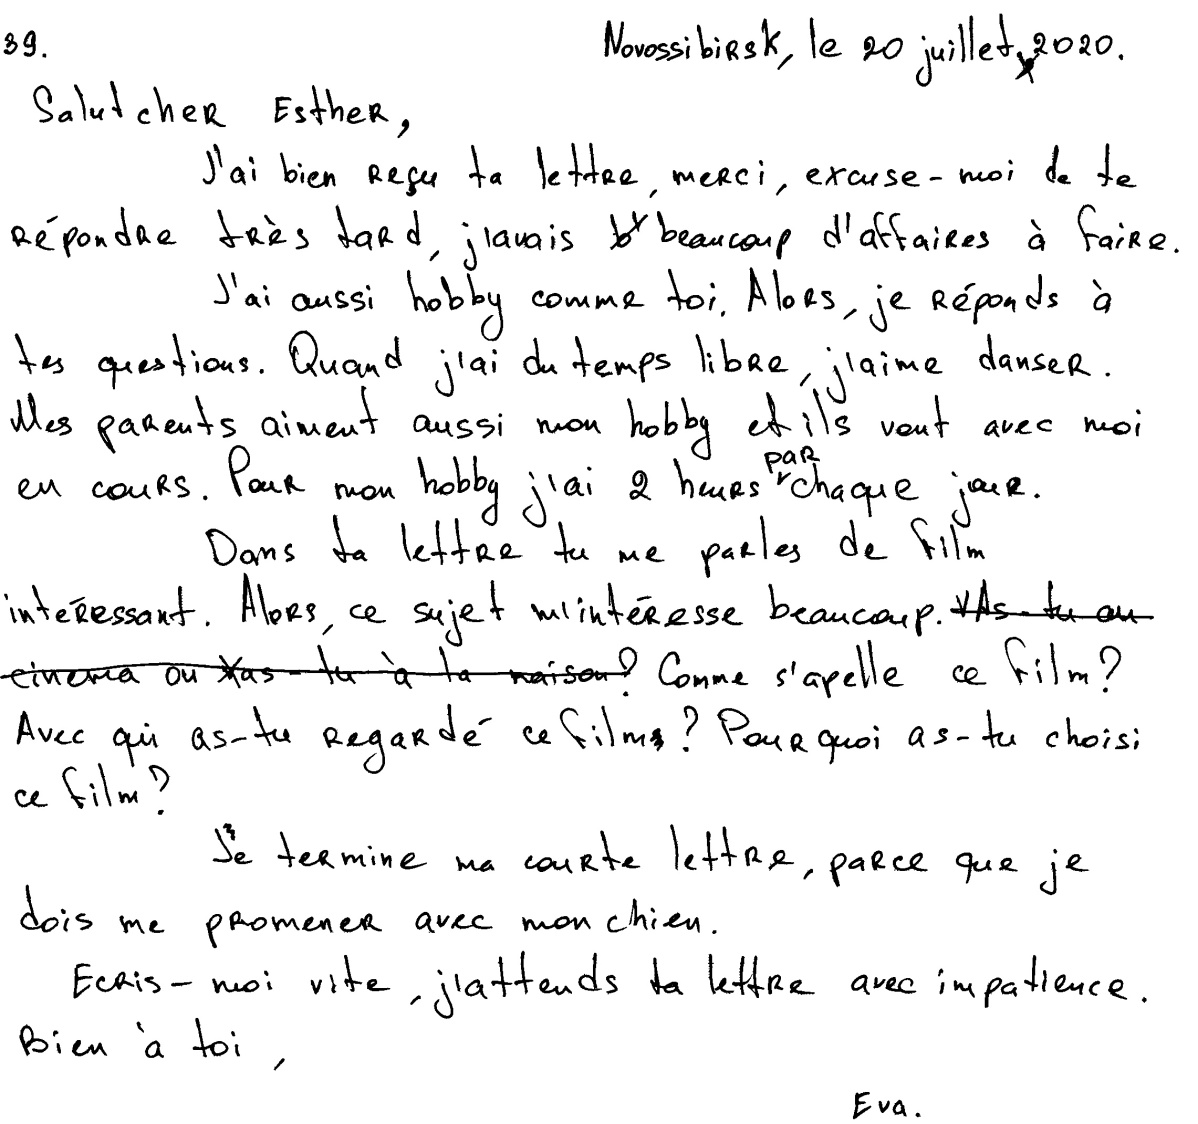 39.
Novossibirsk, le 20 juillet 2020.
Salut cher Esther,
J'ai bien reçu ta lettre, merci, excuse-moi de te
répondre très tard, j'avais beaucoup d'affaires à faire.
J'ai aussi hobby comme toi. Alors, je réponds à
tes questions. Quand j'ai du temps libre, j'aime danser.
Mes parents aiment aussi mon hobby et ils vont avec moi
en cours. Pour mon hobby j'ai 2 heures par chaque jour.
Dans ta lettre tu me parles de film
intéressant. Alors, ce sujet m'intéresse beaucoup. As-tu au
cinema ou as-tu à la maison? Comme s'apelle ce film?
Avec qui as-tu regardé ce film? Pourquoi as-tu choisi
ce film?
Je termine ma courte lettre, parce que je
dois me promener avec mon chien.
Ecris-moi vite, j'attends ta lettre avec impatience.
Bien à toi,
Eva.